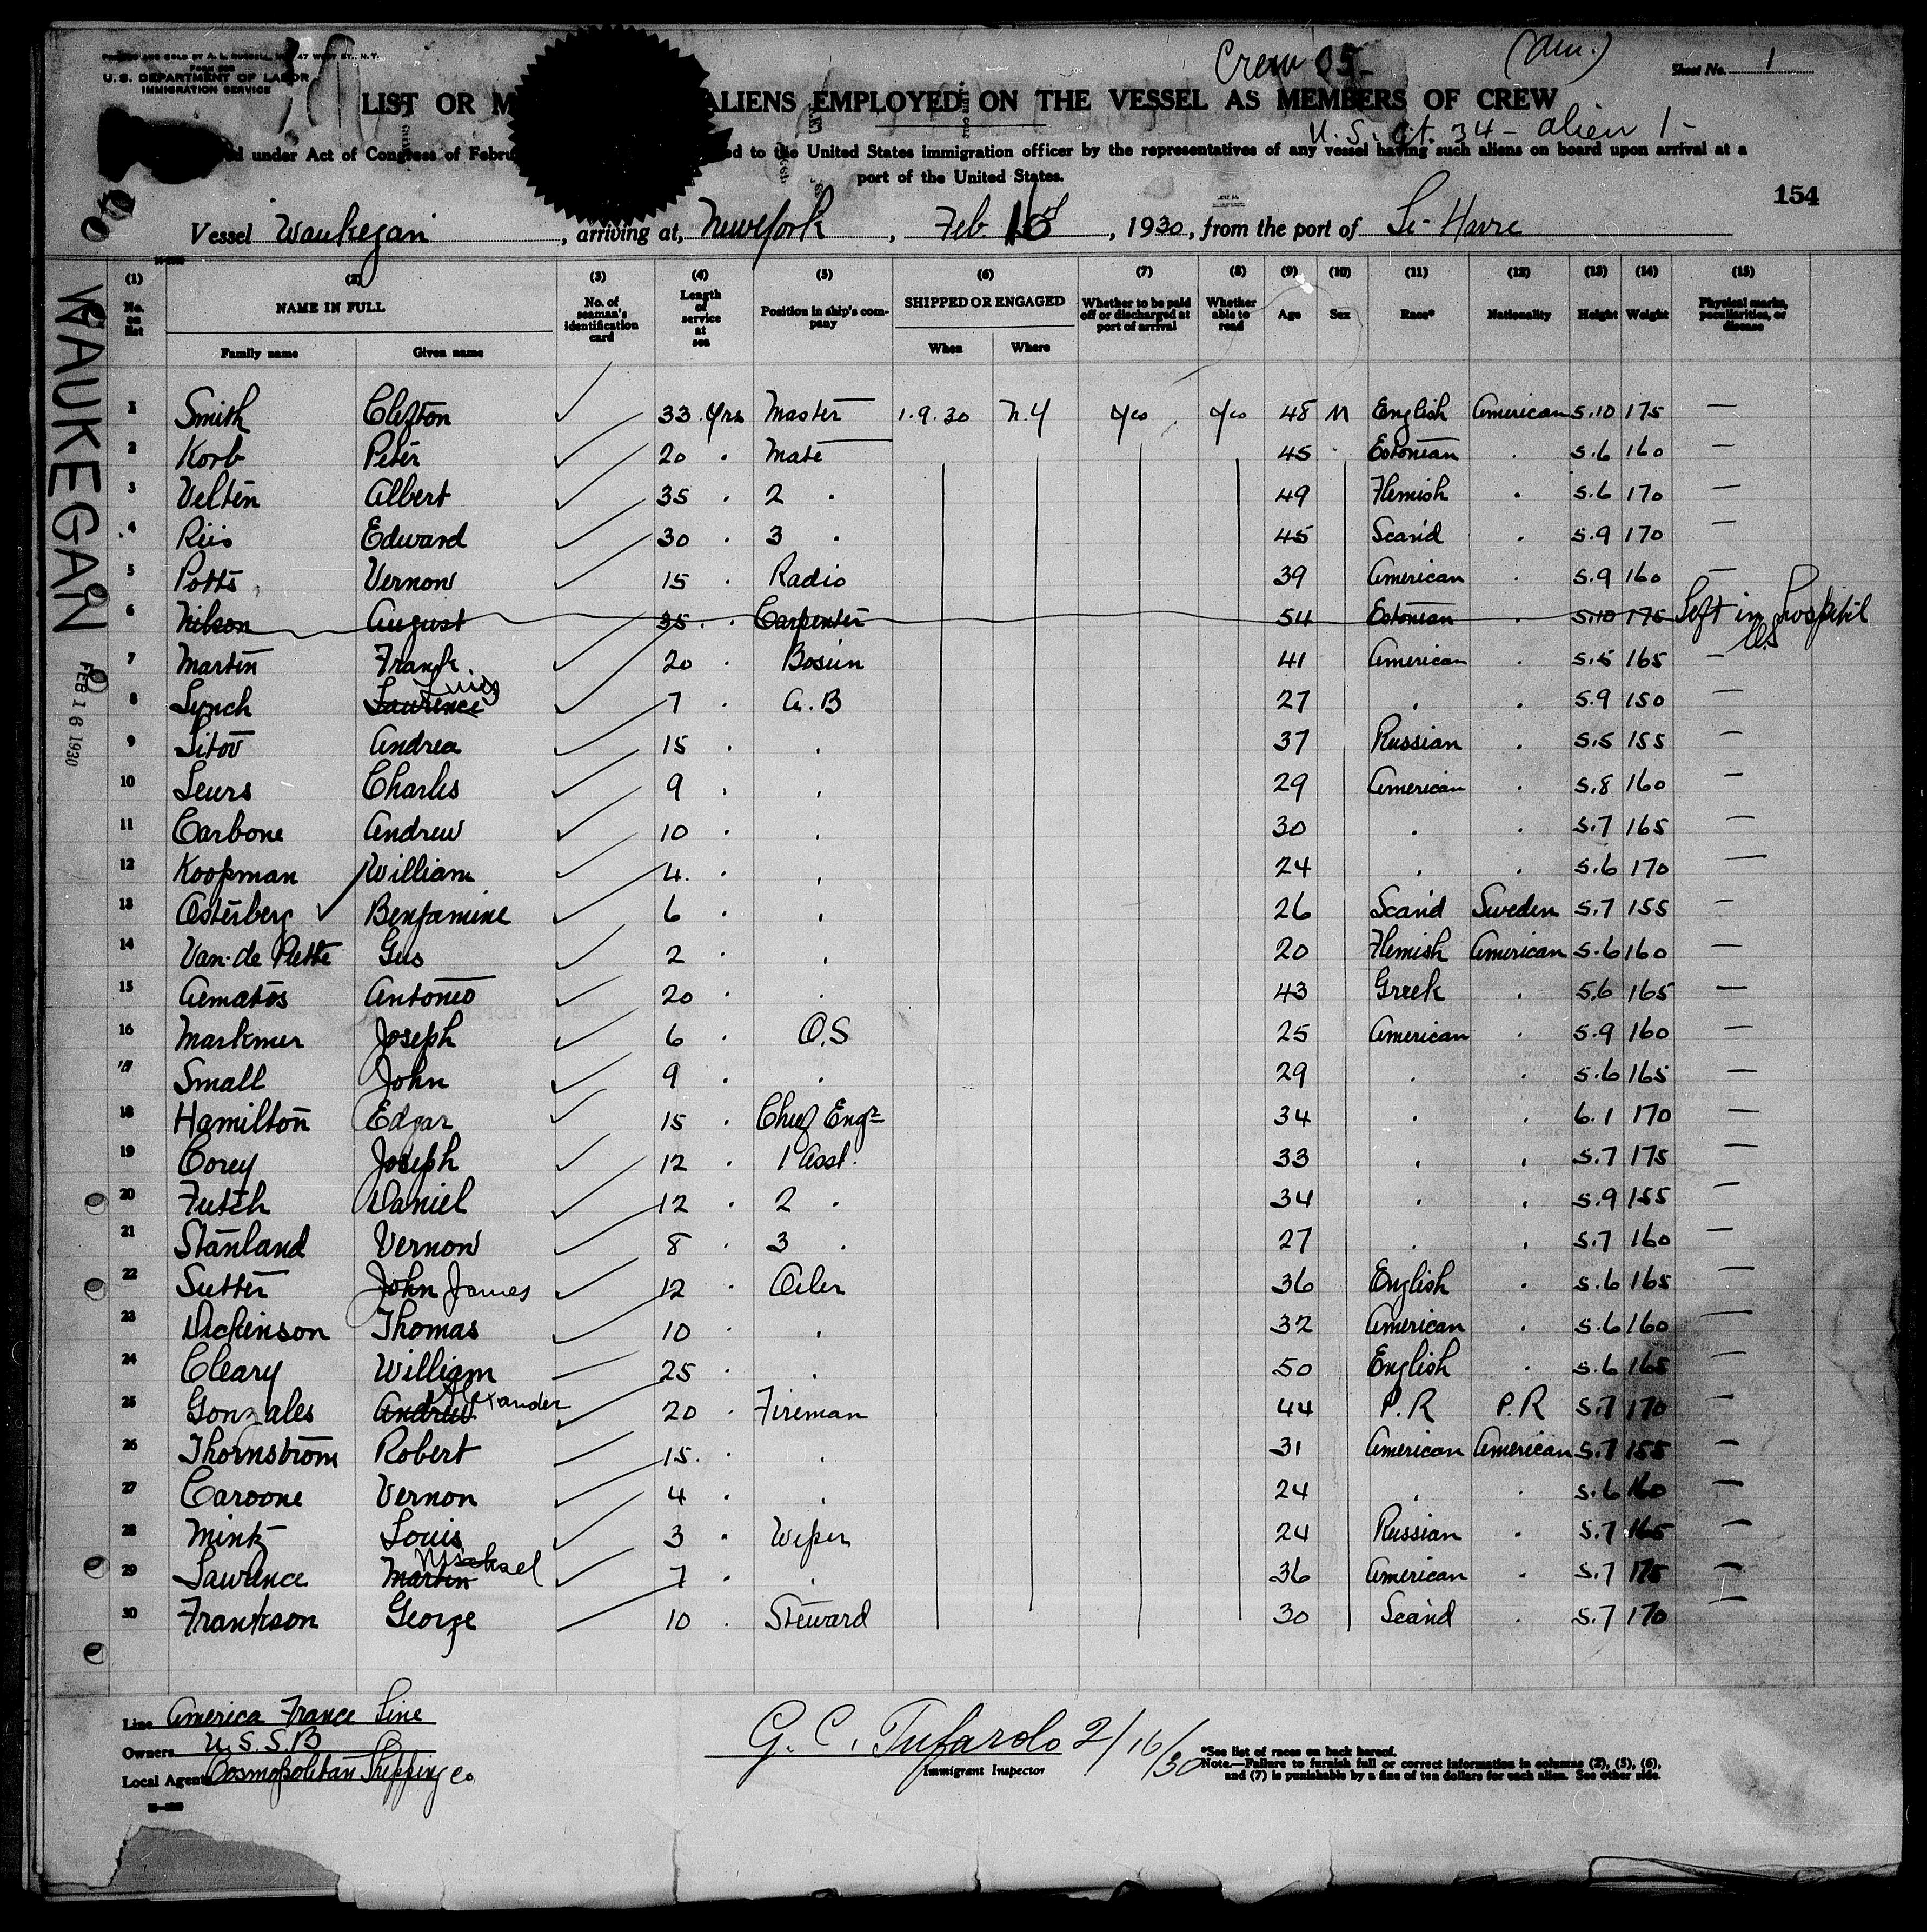 U.S. DEPARTMENT OF LABOR
IMMIGRATION SERVICE
Crew 05-
(Am.)
Sheet No. 1
LIST OR M ALIENS EMPLOYED ON THE VESSEL AS MEMBERS OF CREW
U.S. Cit. 34 - alien 1 -
under Act of Congress of Febru ed to the United States immigration officer by the representatives of any vessel having such aliens on board upon arrival at a
port of the United States.
154
Vessel Waukegan, arriving at, New York, Feb. 16, 1930, from the port of Le-Havre
WAUKEGAN
FEB 16 1930
(1) (2) (3) (4) (5) (6) (7) (8) (9) (10) (11) (12) (13) (14) (15)
No. on list NAME IN FULL No. of seaman's identification card Length of service at sea Position in ship's company SHIPPED OR ENGAGED Whether to be paid off or discharged at port of arrival Whether able to read Age Sex Race* Nationality Height Weight Physical marks, peculiarities, or disease
Family name Given name When Where
1 Smith Clifton 33 yrs Master 1.9.30 N.Y Yes Yes 48 M English American 5.10 175 —
2 Korb Peter 20 . Mate 45 . Estonian . 5.6 160 —
3 Velten Albert 35 . 2 . 49 Flemish . 5.6 170 —
4 Reis Edward 30 . 3 . 45 Scand . 5.9 170 —
5 Potts Vernon 15 . Radio 39 American . 5.9 160 —
6 Nilson August 35 . Carpenter 54 Estonian . 5.10 175 Left in Hospital
7 Martin Frank 20 . Bosun 41 American . 5.5 165 —
8 Lynch Lawrence 7 . A.B 27 . . 5.9 150 —
9 Titov Andrea 15 . . 37 Russian . 5.5 155 —
10 Leurs Charles 9 . . 29 American . 5.8 160 —
11 Carbone Andrew 10 . . 30 . . 5.7 165 —
12 Koopman William 4 . . 24 . . 5.6 170 —
13 Osterberg Benjamine 6 . . 26 Scand Sweden 5.7 155 —
14 Van-de Plette Gus 2 . . 20 Flemish American 5.6 160 —
15 Aematos Antonio 20 . . 43 Greek . 5.6 165 —
16 Markmer Joseph 6 . O.S 25 American . 5.9 160 —
17 Small John 9 . . 29 . . 5.6 165 —
18 Hamilton Edgar 15 . Chief Engr 34 . . 6.1 170 —
19 Corey Joseph 12 . 1 Asst. 33 . . 5.7 175 —
20 Futch Daniel 12 . 2 . 34 . . 5.9 155 —
21 Stanland Vernon 8 . 3 . 27 . . 5.7 160 —
22 Sutter John James 12 . Oiler 36 English . 5.6 165 —
23 Dickinson Thomas 10 . . 32 American . 5.6 160 —
24 Cleary William 25 . . 50 English . 5.6 165 —
25 Gonzales Andrew Alexander 20 . Fireman 44 P.R P.R 5.7 170 —
26 Thornstrom Robert 15 . . 31 American American 5.7 155 —
27 Caroone Vernon 4 . . 24 . . 5.6 160 —
28 Mink Louis 3 . Wiper 24 Russian . 5.7 165 —
29 Lawrence Martin Michael 7 . . 36 American . 5.7 175 —
30 Frankson George 10 . Steward 30 Scand . 5.7 170 —
Line America France Line
Owners U.S.S.B
Local Agents Cosmopolitan Shipping Co.
G. C. Tufardo 2/16/30
Immigrant Inspector
*See list of races on back hereof.
Note.—Failure to furnish full or correct information in columns (2), (5), (6),
and (7) is punishable by a fine of ten dollars for each alien. See other side.